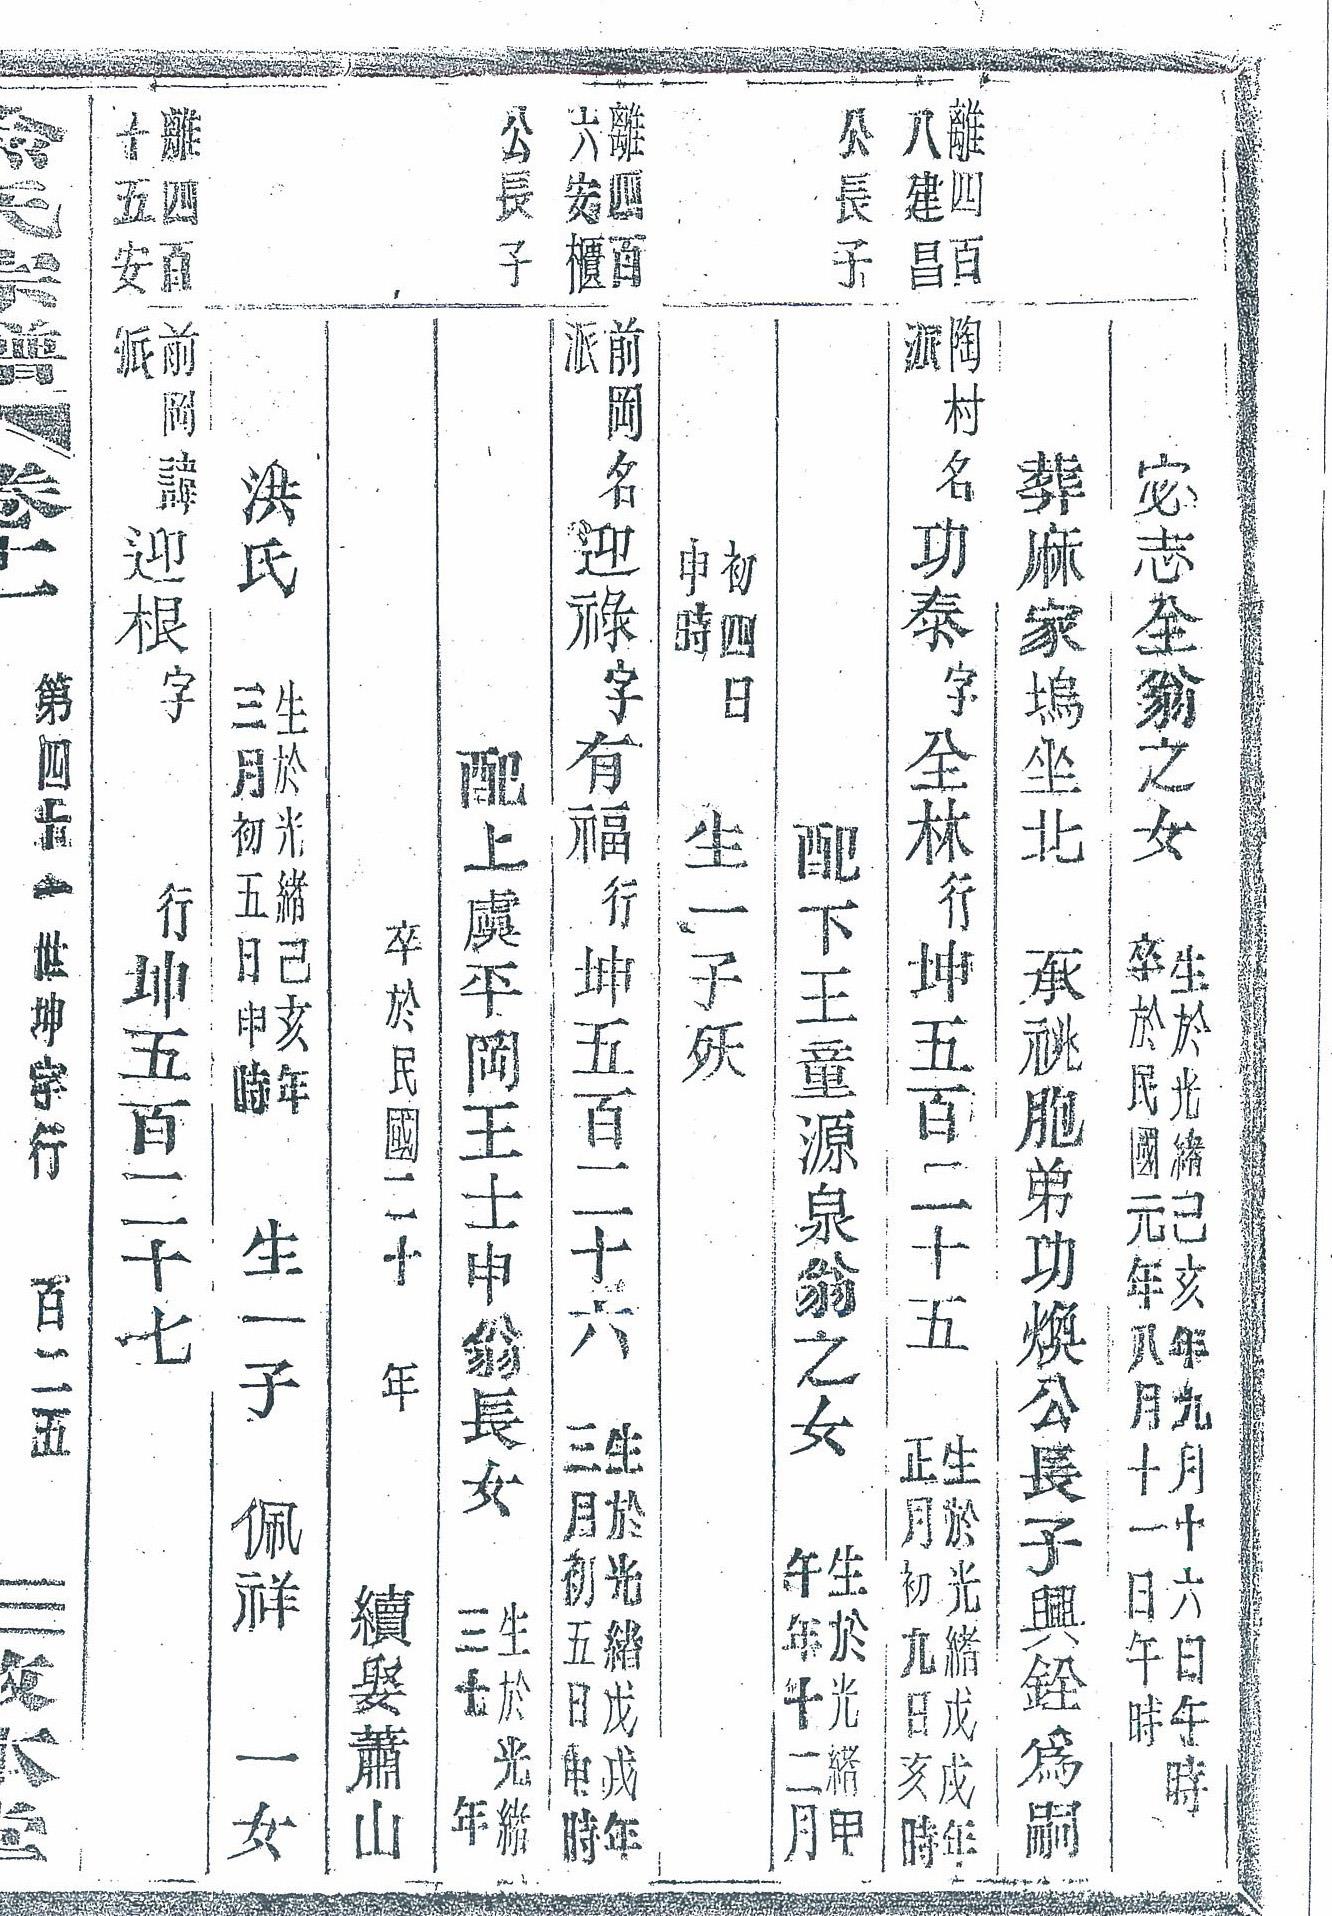 宓志全翁之女 生於光緒己亥年九月十六日午時
卒於民國元年八月十一日午時
葬麻家塢坐北 承祧胞弟功煥公長子興銓為嗣
離四百
八建昌
陶村
派
名功泰字全林行坤五百二十五 生於光緒戊戌年
正月初九日亥時
公長子
配下王童源泉翁之女 生於光緒甲
午年十二月
初四日
申時
生一子殀
離四百
六安櫃
前岡
派
名迎祿字有福行坤五百二十六 生於光緒戊戌年
三月初五日申時
公長子
配上虞平岡王士申翁長女 生於光緒
三十 年
卒於民國二十 年 續娶蕭山
洪氏 生於光緒己亥年
三月初五日申時
生一子 佩祥 一女
離四百
十五安
前岡
派
諱迎根字 行坤五百二十七
氏宗譜 卷十一 第四十一世坤字行 百二五 本堂